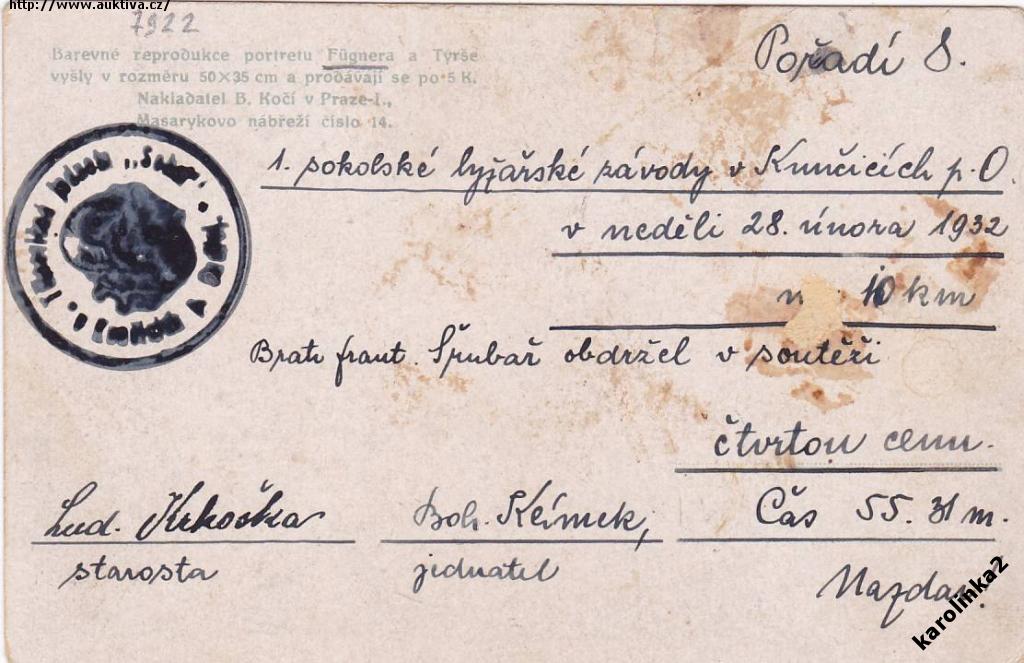 http://www.auktiva.cz/
7922
Barevné reprodukce portretu Fügnera a Tyrše
vyšly v rozměru 50×35 cm a prodávají se po 5 K.
Nakladatel B. Kočí v Praze-I.,
Masarykovo nábřeží číslo 14.
Pořadí 8.
1. sokolské lyžařské závody v Kunčicích p. O.
v neděli 28. února 1932
10 km
Bratr frant. Špubař obdržel v soutěži
čtvrtou cenu.
Čas 55.31 m.
Lud. Krkoška
starosta
Boh. Klimek,
jednatel
Nazdar.
karolinka2